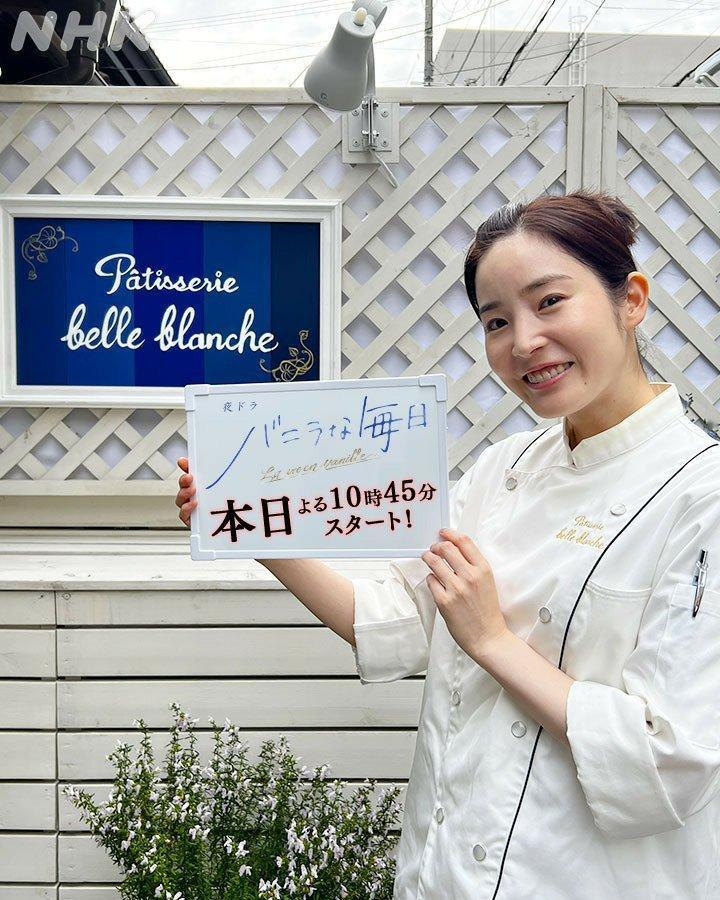 NHK
Pâtisserie
belle blanche
夜ドラ
バニラな毎日
La vie en vanille
本日よる10時45分
スタート!
Pâtisserie
belle blanche